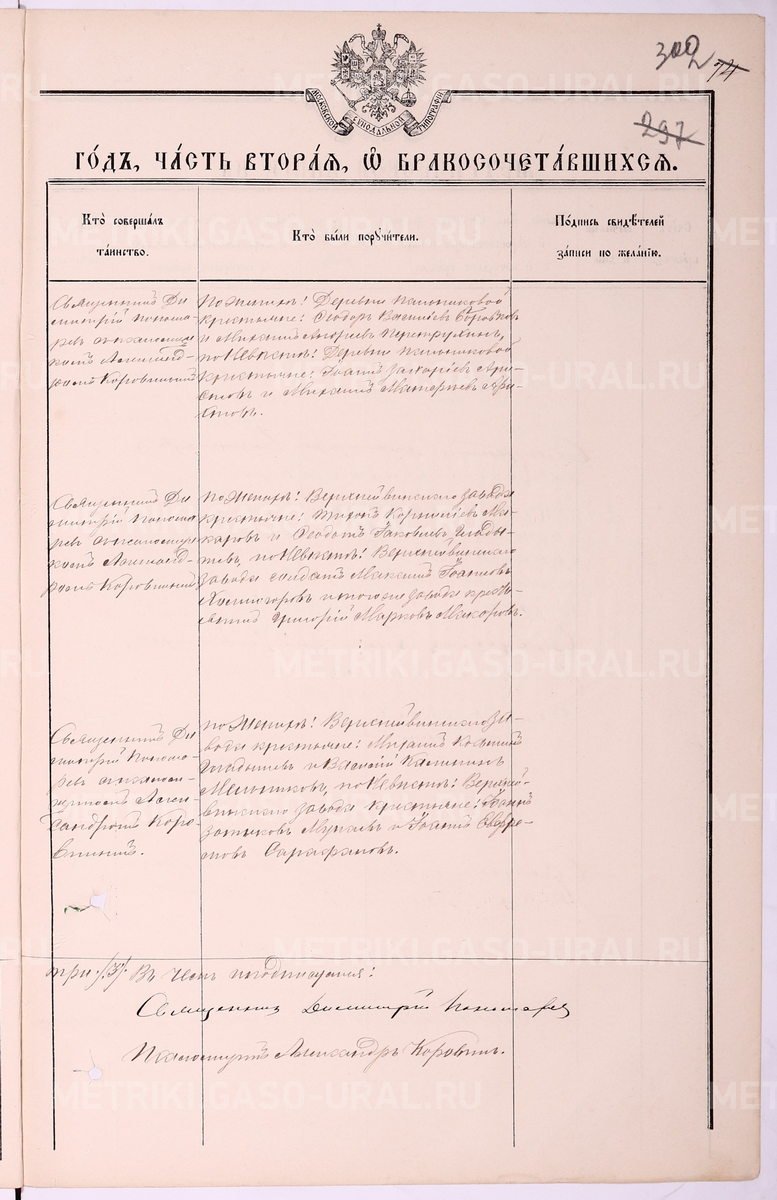 302
74
297
МОСКОВСКОЙ СѴНОДАЛЬНОЙ ТИПОГРАФІИ
ГО́ДЪ, ЧА́СТЬ ВТОРА́Я, Ѽ БРАКОСОЧЕТА́ВШИХСЯ.
Кто̀ соверша́лъ
та́инство.
Кто̀ бы́ли порꙋчи́тели.
По́дпись свидѣ́телей
за́писи по жела́нію.
Священникъ Ди
митрій Понома
ревъ съ псаломщи
комъ Александ-
ромъ Коровинымъ
По Женихѣ:
крестьяне: Ѳеодоръ Василіевъ Боровковъ
и Михаилъ Андреевъ
по Невѣстѣ: Деревни
крестьяне: Іоаннъ Захаріевъ
и Михаилъ
Священникъ Ди
митрій Понома
ревъ съ псаломщи
комъ Александ-
ромъ Коровинымъ
по Женихѣ: Верхнейвинскаго завода
крестьяне: Тихонъ Корниліевъ Ма-
каровъ и Ѳеодотъ Іаковлевъ Глады-
шевъ, по Невѣстѣ: Верхнейвинскаго
завода солдатъ Максимъ Іоанновъ
Холмогоровъ и того же завода кресть-
янинъ Григорій Марковъ Макаровъ.
Священникъ Ди
митрій Понома
ревъ съ псалом-
щикомъ Алек-
сандромъ Коро-
винымъ.
по Женихѣ: Верхнейвинскаго за-
вода крестьяне: Михаилъ
Гладышевъ и Василій Калининъ
Мельниковъ, по Невѣстѣ: Верхней-
винскаго завода крестьяне: Іоаннъ
и Іоаннъ Евфре-
мовъ Сарафановъ.
три /3/. Въ чемъ и подписуемся:
Священникъ Димитрій Пономаревъ
Псаломщикъ Александръ Коровинъ.
METRIKI.GASO-URAL.RU